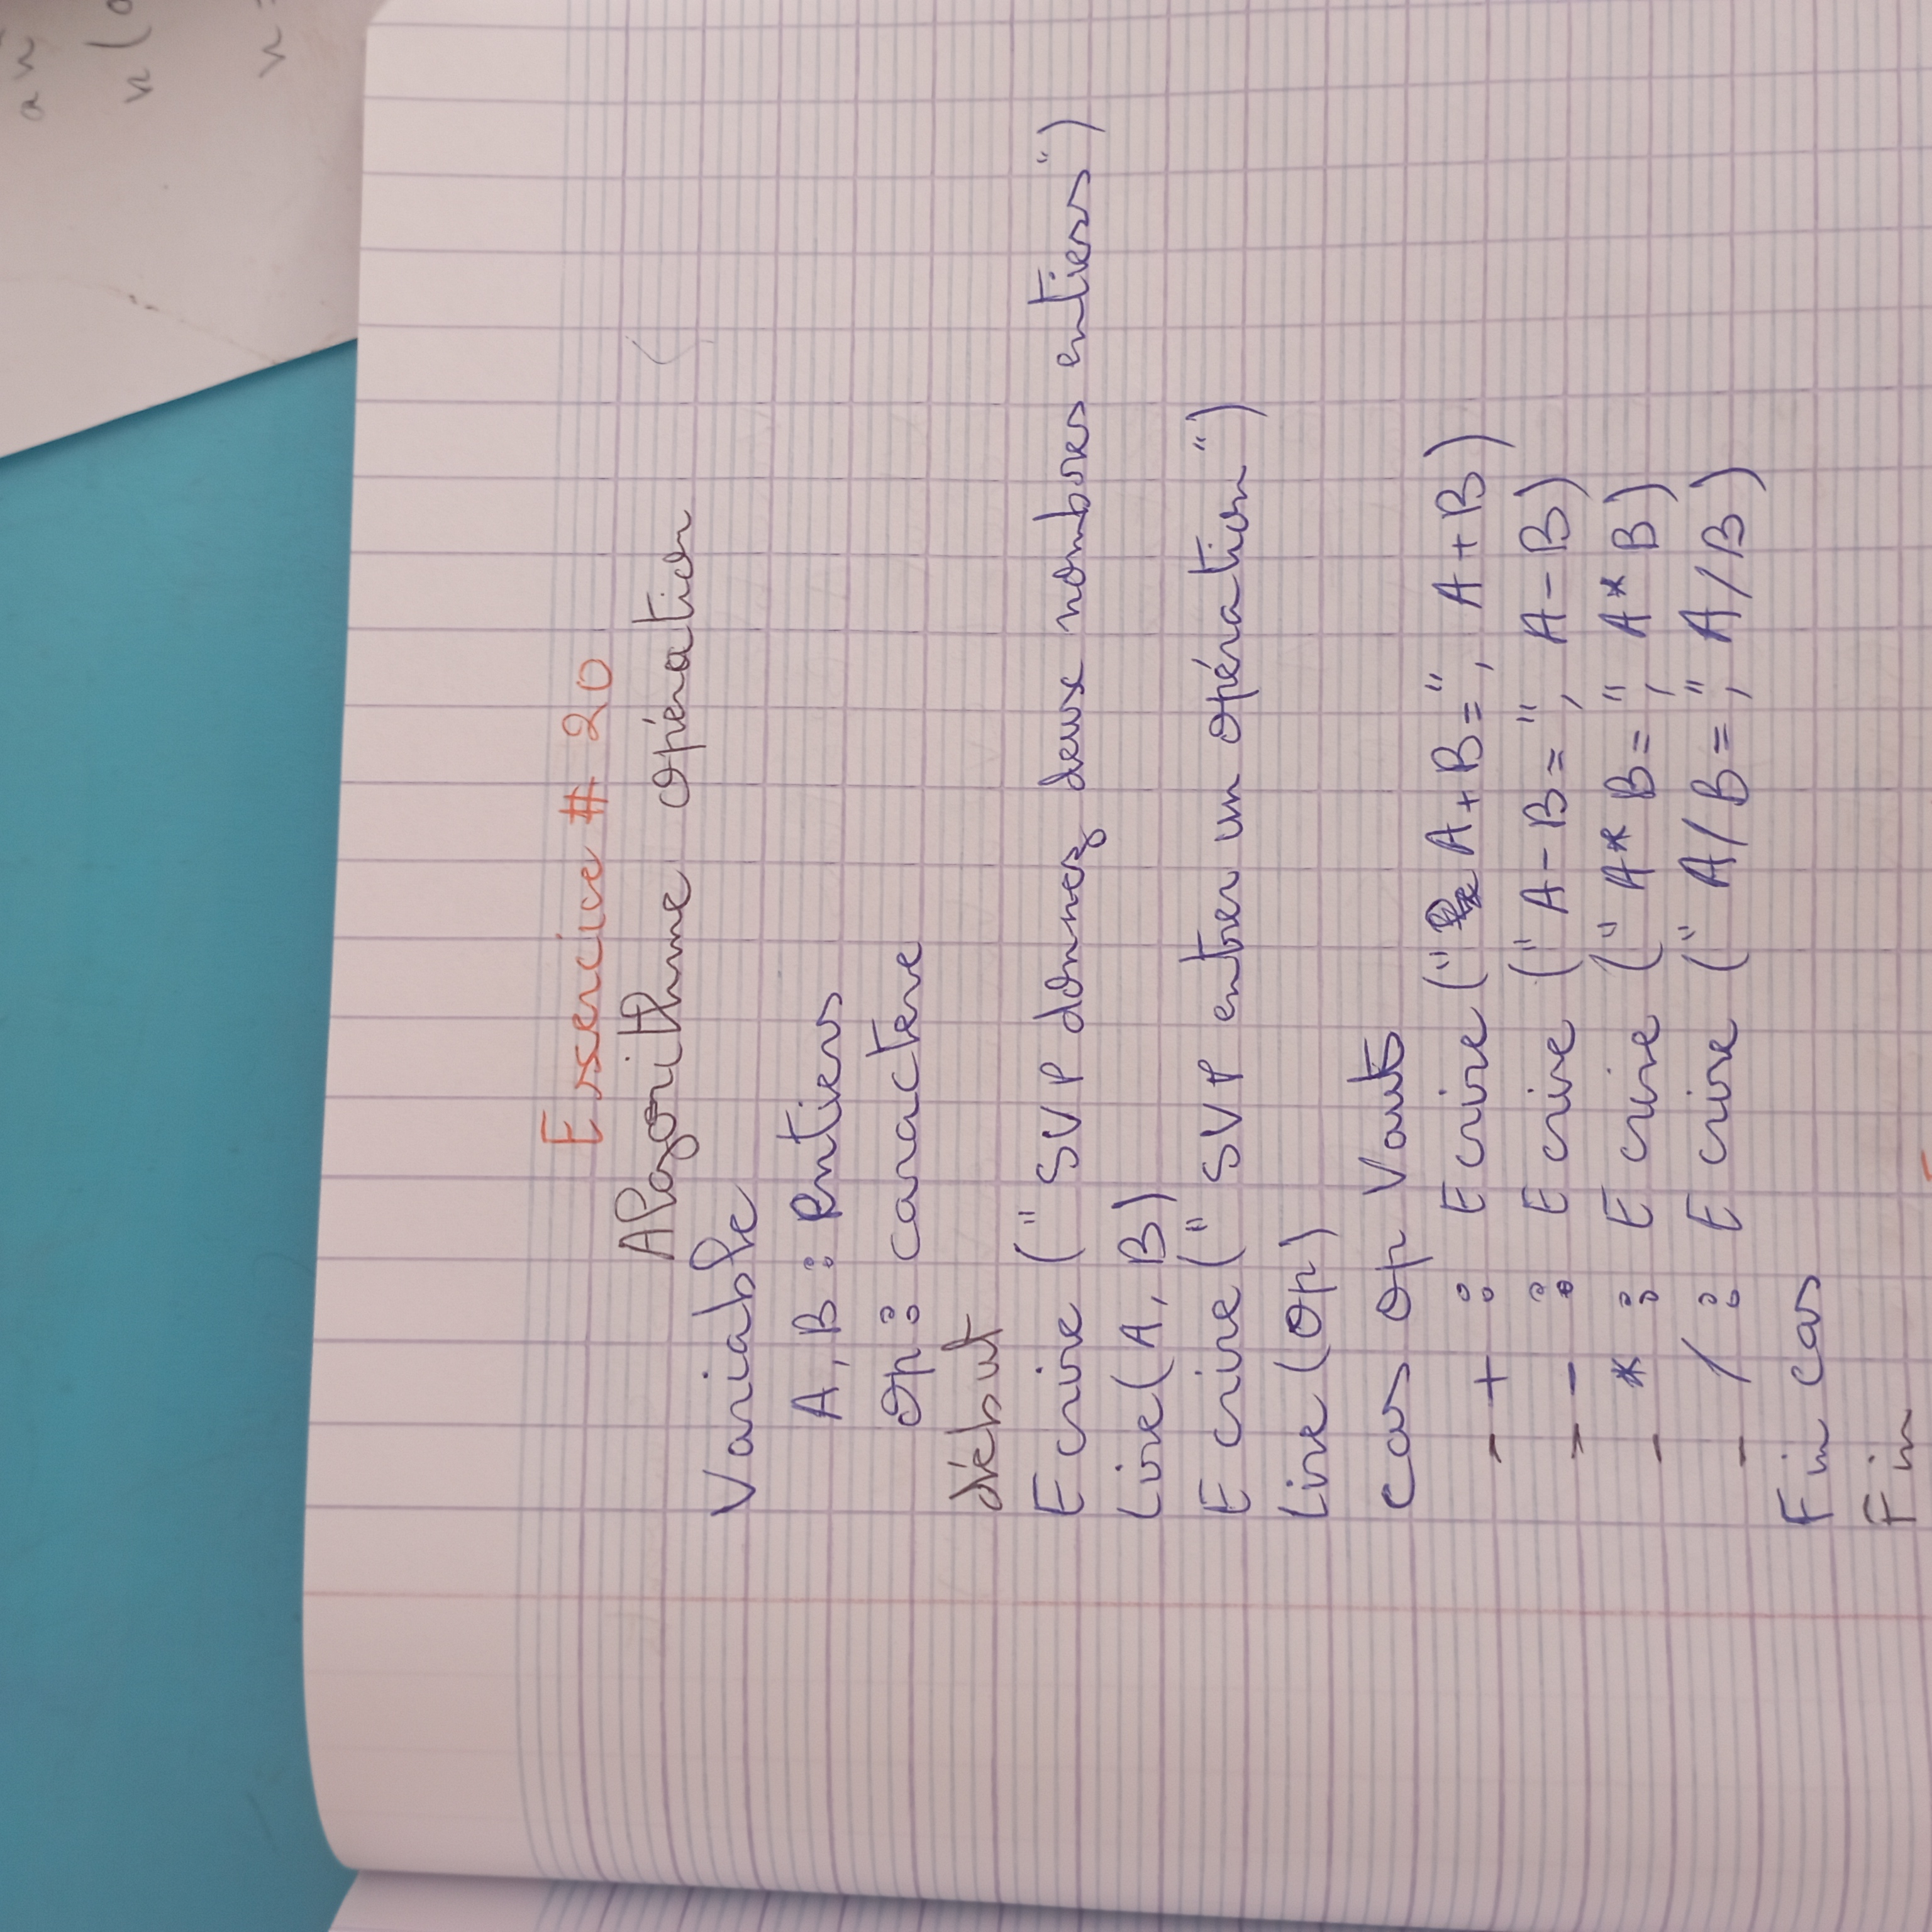 an
n(
n
Exercice # 20
Algorithme opération
Variable
A, B : Entiers
Op : caractère
début
Ecrire (" SVP donnez deux nombres entiers")
Lire(A, B)
Ecrire(" SVP entrer un opération")
Lire (Op)
cas op Vaut
- + : Ecrire (" A+B=", A+B)
- - : Ecrire (" A-B= ", A-B)
- * : Ecrire (" A* B= ", A* B)
- / : Ecrire (" A/B= ", A/B)
Fin cas
Fin